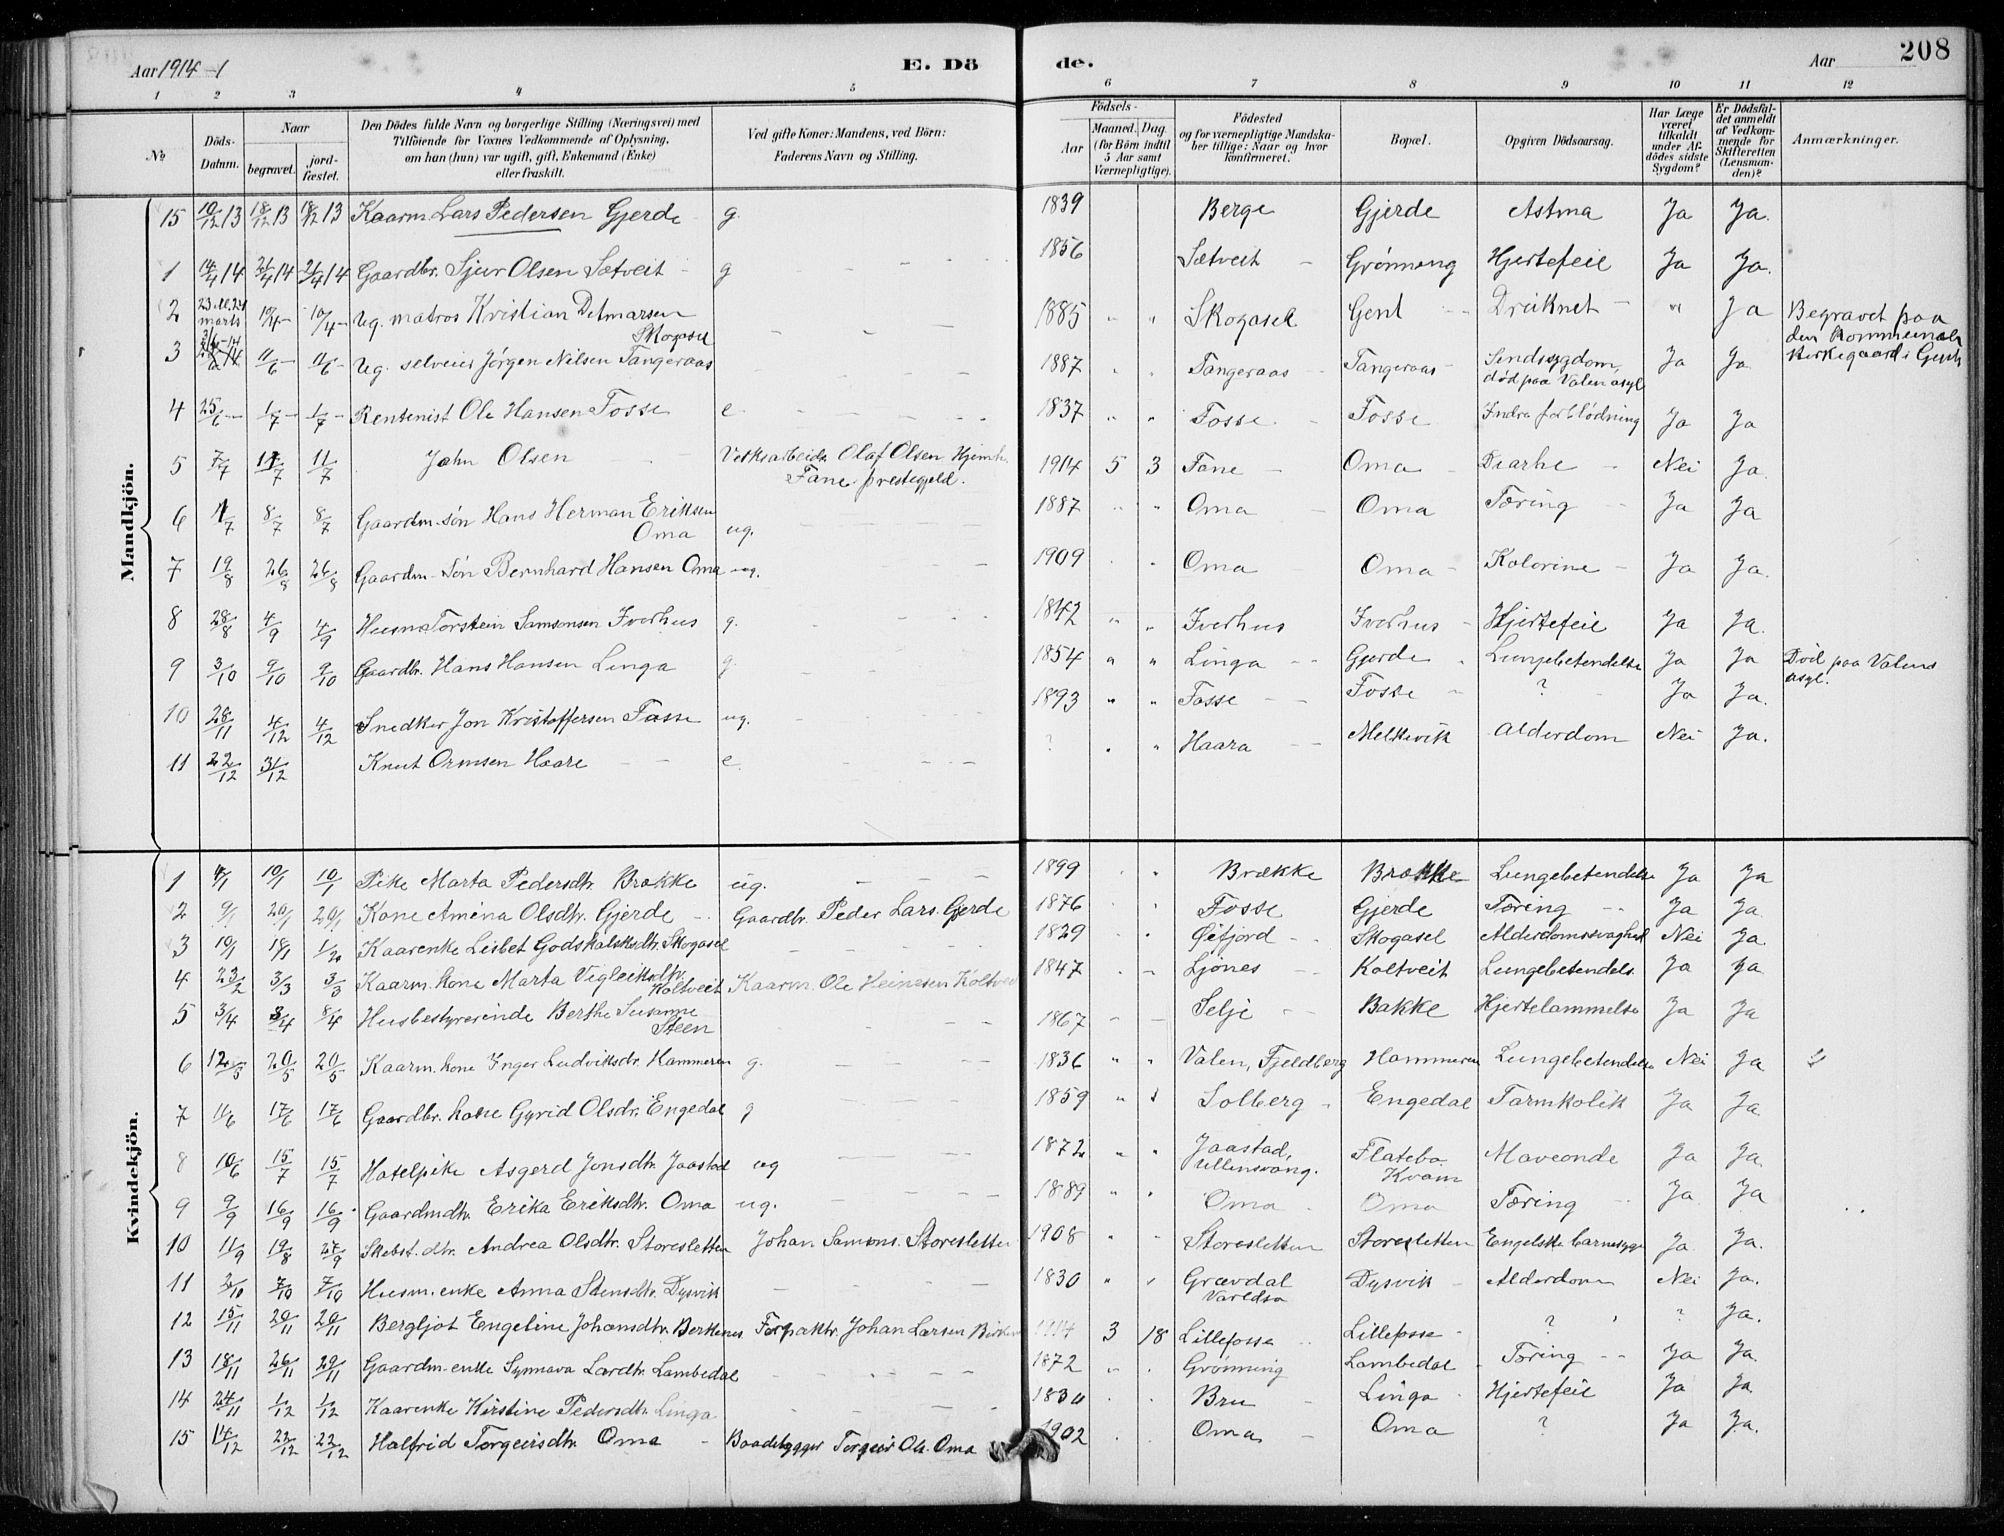 Aar 1914 -1 E. Dö de. Aar 208
1 2 3 4 5 6 7 8 9 10 11 12
№ Döds-Datum. Naar begravet. jord-fæstet. Den Dödes fulde Navn og borgerlige Stilling (Næringsvei) med Tilföiende for Voxnes Vedkommende af Oplysning, om han (hun) var ugift, gift, Enkemand (Enke) eller fraskilt. Ved gifte Koner: Mandens, ved Börn: Faderens Navn og Stilling. Födsels- Aar Maaned. Dag. (for Börn indtil 5 Aar samt Værnepligtige). Födested og for værnepligtige Mandska-ber tillige: Naar og hvor konfirmeret. Bopæl. Opgiven Dödsaarsag. Har Læge været tilkaldt under Af-dödes sidste Sygdom? Er Dödsfal-det anmeldt af Vedkom-mende for Skifteretten (Lensman-den)? Anmærkninger.
Mandkjön.
15 10/12 13 18/12 13 18/12 13 Kaarm. Lars Pedersen Gjerde g. 1839 Berge Gjerde Astma Ja Ja.
1 14/4 14 21/4 14 21/4 14 Gaardbr. Sjur Olsen Sætveit g 1856 Sætveit Grønnang Hjertefeil Ja Ja.
2 marts 10/4 10/4 Ug. matros Kristian Detmarsen Skogasel 1885 " " Skogasel Gent Druknet " Ja Begravet paa den kommunale kirkegaard i Gent
3 11/6 11/6 Ug. selveier Jörgen Nilsen Tangeraas 1887 Tangeraas Tangeraas Sindssygdom, död paa Valen asyl Ja Ja
4 25/6 1/7 1/7 Rentenist Ole Hansen Fosse e. 1837 " " Fosse Fosse Indre forblödning Ja Ja
5 7/7 11/7 11/7 John Olsen Verksarbeider Olaf Olsen Fane prestegjeld. 1914 5 3 Fane Oma Diarhe Nei Ja.
6 1/7 8/7 8/7 Gaardm. sön Hans Herman Eriksen Oma ug. 1887 " " Oma Oma Tæring Ja Ja
7 19/8 26/8 26/8 Gaardm. Sön Bernhard Hansen Oma ug. 1909 Oma Oma Kolorine Ja Ja.
8 28/8 4/9 4/9 Husm. Torstein Samsonsen Iverhus g. 1842 " " Iverhus Iverhus Hjertefeil Ja Ja.
9 3/10 9/10 9/10 Gaardbr. Hans Hansen Linga g. 1854 " " Linga Gjerde Lungebetendelse Ja Ja Död paa Valens asyl.
10 28/11 4/12 4/12 Snedker Jon Kristoffersen Fosse ug. 1893 " " Fosse Fosse ? Ja Ja.
11 22/12 31/12 Knut Ormsen Haare e. ? " " Haara Melkevik Alderdom Nei Ja.
Kvindekjön.
1 4/1 10/1 10/1 Pike Marta Pedersdtr. Brække ug. 1899 Brække Brække Lungebetendelse Ja Ja
2 9/1 20/1 20/1 Kone Amèna Olsdtr. Gjerde Gaardbr. Peder Lars. Gjerde 1876 Fosse Gjerde Tæring Ja Ja
3 10/1 18/1 Kaarenke Lisbet Godskalksdtr. Skogasel 1829 Øifjord Skogasel Alderdomssvaghed Nei Ja
4 23/2 3/3 3/3 Kaarm. kone Marta Vigleiksdtr. Koltveit Kaarm. Ole Heinesen Koltveit 1847 Ljones Koltveit Lungebetendels. Ja Ja
5 3/4 8/4 8/4 Husbestyrerinde Berthe Susanne Steen 1867 Selje Bakke Hjertelammelse Ja Ja
6 12/5 20/5 20/5 Kaarm. kone Inger Ludviksdtr. Hammeren g. 1836 " " Valen, Fjeldberg Hammeren Lungebetendelse Nei Ja
7 11/6 17/6 17/6 Gaardbr. kone Gyrid Olsdtr. Engedal g 1859 Solberg Engedal Tarmkolik Ja Ja
8 10/6 15/7 15/7 Hotelpike Asgerd Jonsdtr. Jaastad ug 1872 " " Jaastad, Ullensvang. Flatebø Kvam Maveonde Ja Ja
9 9/9 16/9 16/9 Gaardmdtr. Erika Eriksdtr. Oma ug. 1889 " " Oma Oma Tæring Ja Ja
10 11/9 19/8 27/9 Skibst. dtr. Andrea Olsdtr. Storesletten Johan Samsons. Storesletten 1908 " " Storesletten Storesletten Engelske barnesyge Ja. Ja.
11 2/10 7/10 7/10 Husm. enke Anna Stensdtr. Dysvik 1830 " " Grævdal Varldsø Dysvik Alderdom Nei Ja.
12 15/11 20/11 20/11 Bergljot Engeline Johansdtr. Berkenes Forpaktr. Johan Larsen 1914 3 18 Lillefosse Lillefosse ? ? Ja.
13 18/11 26/11 29/11 Gaardm. enke Synnøva Larsdtr. Lambedal 1872 Grønning Lambedal Tæring Ja Ja.
14 24/11 1/12 1/12 Kaarenke Kirstine Pedersdtr. Linga Bru Linga Hjertefeil Ja Ja
15 14/12 22/12 22/12 Halfrid Torgeirsdtr. Oma Baadbygger Torgeir Ols. Oma 1902 Oma Oma ? Ja Ja.